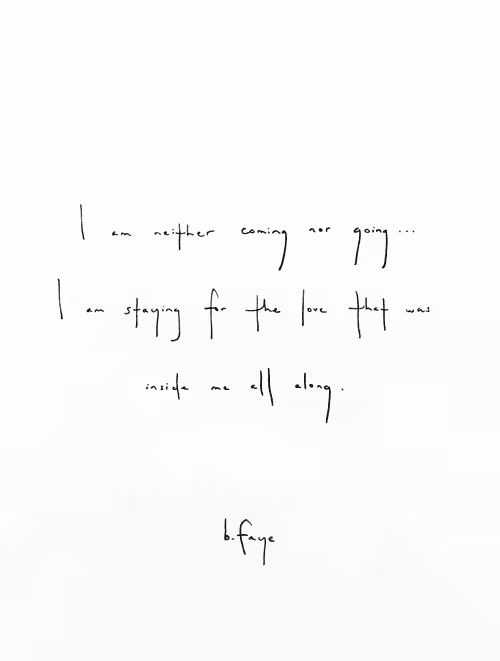 I am neither coming nor going...
I am staying for the love that was
inside me all along.
b.faye